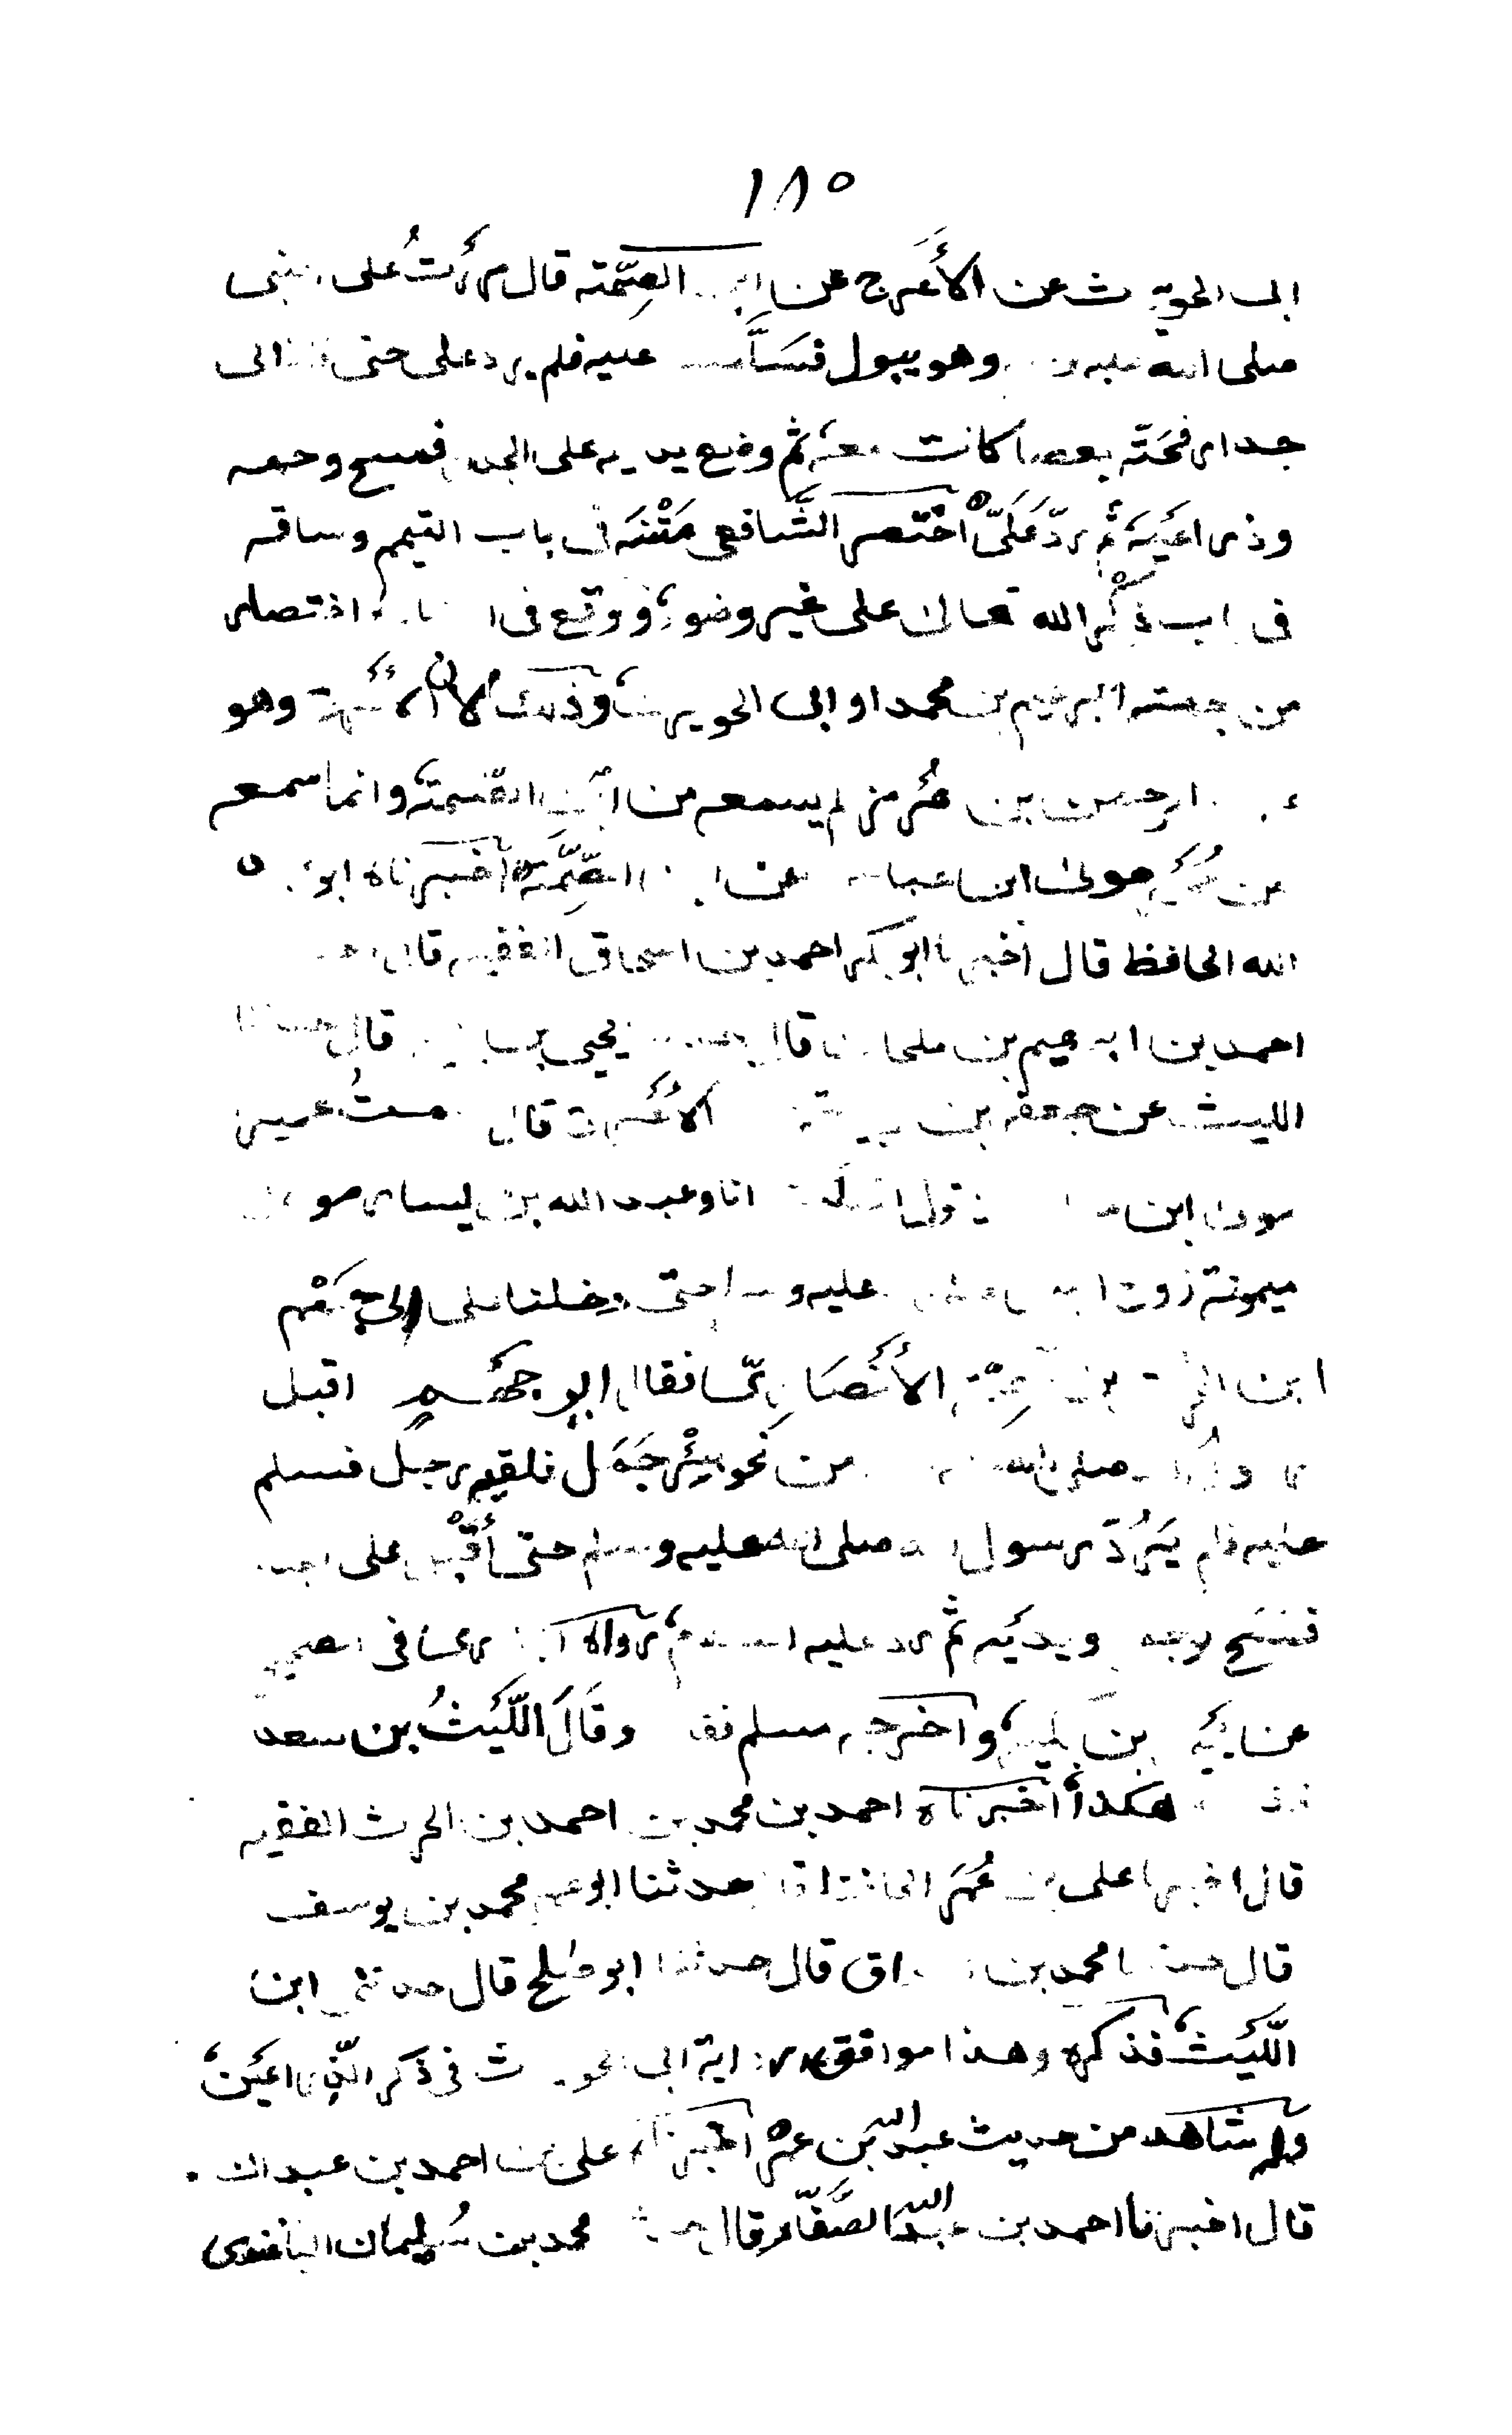 ١٨٥
ابى الحويرث عن الأَعْرج عن ابن الصِّمّة قال مررْتُ على النبى
صلى الله عليه وسلم وهو يبول فسَلَّمت عليه فلم يرد على حتى قام الى
جدار فحَتّه بعصا كانت معه ثم وضع يديه على الجدار فمسح وجهه
وذراعَيْه ثم ردّ عَلَىّ اختصر الشَّافعى مَتْنَه فى باب التيمم وساقه
فى باب ذكْر الله تعالى على غير وضوء ووقع فى اختصار
من جهته ابرهيم بن محمد او ابى الحويرث وذلك لان الأعْرج وهو
عبد الرحمن بن هُرْمز لم يسمعه من ابن الصمة وانما سمعه
من عُمَيْر مولى ابن عباس عن ابن الصِّمَّة اخبرناه ابو عبد
الله الحافظ قال اخبرنا ابو بكر احمد بن اسحاق الفقيه قال
احمد بن ابرهيم بن ملحان قال يحيى بن بكير قال حدثنا
الليث عن جعفر بن ربيعة الأعْرج قال سمعتُ عمير
مولى ابن عباس يقول اقبلت انا وعبد الله بن يسار مولى
ميمونة زوج النبى صلى الله عليه وسلم حتى دخلنا على ابى جَهْم
ابن الحرث بن الصِّمّة الأنْصَارىّ فقال ابو جُهَيْم اقبل
رسول الله صلى الله من نحو بِئْر جَمَل فلقيه رجل فسلم
عليه فلم يَرُدّ رسول الله صلى الله عليه وسلم حتى أقْبل على الجدار
فمَسَح بوجهه ويديْه ثم رد عليه السلام رواه البخارى فى الصحيح
عن يحيى بن بكير واخرجه مسلم فقال وقَالَ اللَّيْثُ بن سعد
هكذا اخبرناه احمد بن محمد بن احمد بن الحرث الفقيه
قال اخبرنا على بن عُمَر الحافظ قال حدثنا ابو عمر محمد بن يوسف
قال حدثنا محمد بن اسحاق قال حدثنا ابو صٰلح قال حدثنى ابن
اللَّيْث فذكره وهذا موافق لرواية ابى الحويرث فى ذكر الذِّراعَيْن
وله شاهد من حديث عبد الله بن عمر اخبرناه على بن احمد بن عبدان
قال اخبرنا احمد بن عبيد الله الصَّفَّار قال حدثنا محمد بن سُليمان الباغندى